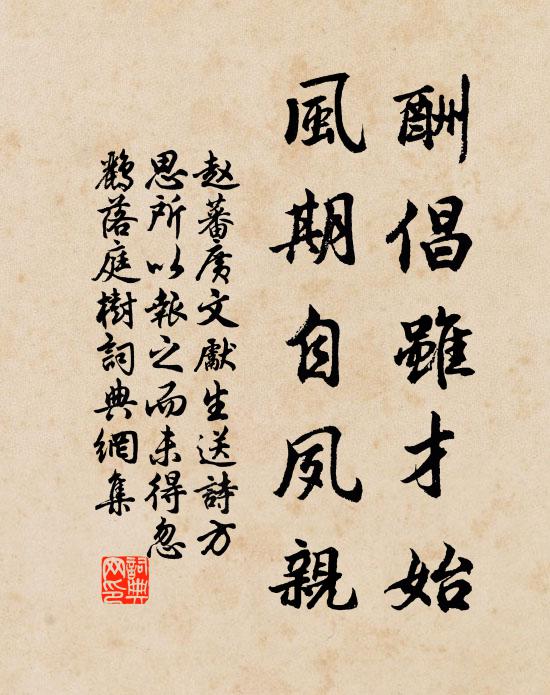 酬倡雖才始
風期自夙親
赵蕃廣文獻生送詩方
思所以報之而未得忽
鶴落庭樹詞典網集
詞典
网印